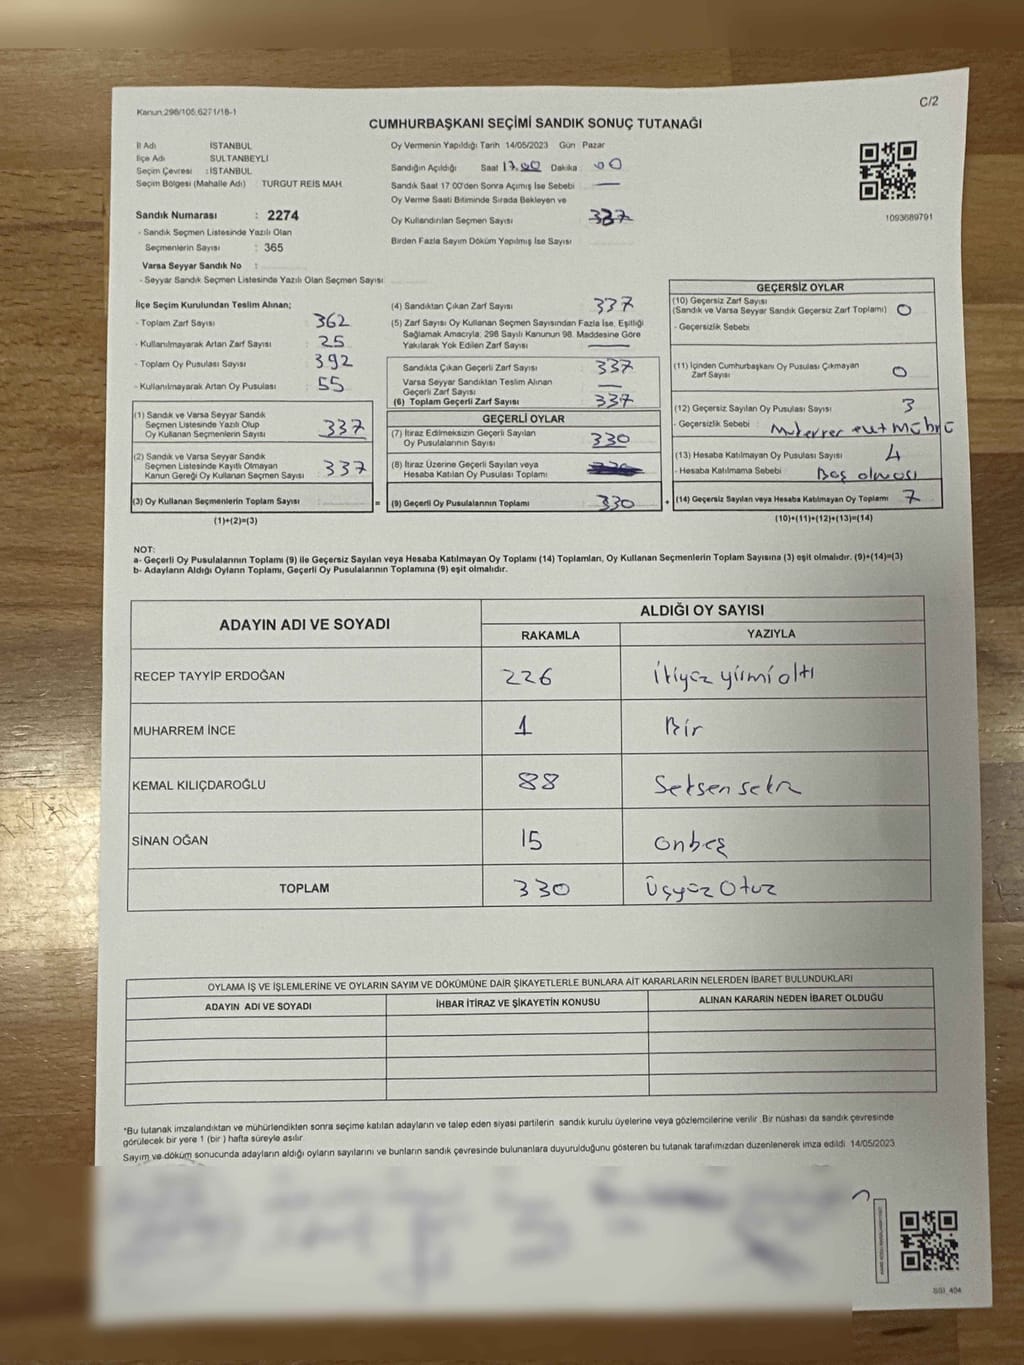 Kanun:298/105,6271/18-1
C/2
CUMHURBAŞKANI SEÇİMİ SANDIK SONUÇ TUTANAĞI
İl Adı İSTANBUL
İlçe Adı SULTANBEYLİ
Seçim Çevresi : İSTANBUL
Seçim Bölgesi (Mahalle Adı) TURGUT REİS MAH.
Sandık Numarası : 2274
- Sandık Seçmen Listesinde Yazılı Olan
Seçmenlerin Sayısı : 365
Varsa Seyyar Sandık No :
- Seyyar Sandık Seçmen Listesinde Yazılı Olan Seçmen Sayısı:
Oy Vermenin Yapıldığı Tarih 14/05/2023 Gün Pazar
Sandığın Açıldığı Saat 17.00 Dakika : 00
Sandık Saat 17:00'den Sonra Açımış İse Sebebi —
Oy Verme Saati Bitiminde Sırada Bekleyen ve
Oy Kullandırılan Seçmen Sayısı 337
Birden Fazla Sayım Döküm Yapılmış İse Sayısı
1093689791
İlçe Seçim Kurulundan Teslim Alınan;
- Toplam Zarf Sayısı 362
- Kullanılmayarak Artan Zarf Sayısı 25
- Toplam Oy Pusulası Sayısı 392
- Kullanılmayarak Artan Oy Pusulası 55
(1) Sandık ve Varsa Seyyar Sandık
Seçmen Listesinde Yazılı Olup
Oy Kullanan Seçmenlerin Sayısı 337
(2) Sandık ve Varsa Seyyar Sandık
Seçmen Listesinde Kayıtlı Olmayan
Kanun Gereği Oy Kullanan Seçmen Sayısı 337
(3) Oy Kullanan Seçmenlerin Toplam Sayısı =
(1)+(2)=(3)
(4) Sandıktan Çıkan Zarf Sayısı 337
(5) Zarf Sayısı Oy Kullanan Seçmen Sayısından Fazla İse, Eşitliği
Sağlamak Amacıyla; 298 Sayılı Kanunun 98. Maddesine Göre
Yakılarak Yok Edilen Zarf Sayısı —
Sandıkta Çıkan Geçerli Zarf Sayısı 337
Varsa Seyyar Sandıktan Teslim Alınan
Geçerli Zarf Sayısı —
(6) Toplam Geçerli Zarf Sayısı 337
GEÇERLİ OYLAR
(7) İtiraz Edilmeksizin Geçerli Sayılan
Oy Pusulalarının Sayısı 330
(8) İtiraz Üzerine Geçerli Sayılan veya
Hesaba Katılan Oy Pusulası Toplamı
(9) Geçerli Oy Pusulalarının Toplamı 330 +
GEÇERSİZ OYLAR
(10) Geçersiz Zarf Sayısı
(Sandık ve Varsa Seyyar Sandık Geçersiz Zarf Toplamı) 0
- Geçersizlik Sebebi
(11) İçinden Cumhurbaşkanı Oy Pusulası Çıkmayan
Zarf Sayısı 0
(12) Geçersiz Sayılan Oy Pusulası Sayısı 3
- Geçersizlik Sebebi : Mükerrer evet mührü
(13) Hesaba Katılmayan Oy Pusulası Sayısı 4
- Hesaba Katılmama Sebebi Boş olması
(14) Geçersiz Sayılan veya Hesaba Katılmayan Oy Toplamı 7
(10)+(11)+(12)+(13)=(14)
NOT:
a- Geçerli Oy Pusulalarının Toplamı (9) ile Geçersiz Sayılan veya Hesaba Katılmayan Oy Toplamı (14) Toplamları, Oy Kullanan Seçmenlerin Toplam Sayısına (3) eşit olmalıdır. (9)+(14)=(3)
b- Adayların Aldığı Oyların Toplamı, Geçerli Oy Pusulalarının Toplamına (9) eşit olmalıdır.
ADAYIN ADI VE SOYADI
ALDIĞI OY SAYISI
RAKAMLA YAZIYLA
RECEP TAYYİP ERDOĞAN 226 ikiyüz yirmi altı
MUHARREM İNCE 1 Bir
KEMAL KILIÇDAROĞLU 88 Seksen sekiz
SİNAN OĞAN 15 onbeş
TOPLAM 330 Üçyüz Otuz
OYLAMA İŞ VE İŞLEMLERİNE VE OYLARIN SAYIM VE DÖKÜMÜNE DAİR ŞİKAYETLERLE BUNLARA AİT KARARLARIN NELERDEN İBARET BULUNDUKLARI
ADAYIN ADI VE SOYADI İHBAR İTİRAZ VE ŞİKAYETİN KONUSU ALINAN KARARIN NEDEN İBARET OLDUĞU
*Bu tutanak imzalandıktan ve mühürlendikten sonra seçime katılan adayların ve talep eden siyasi partilerin sandık kurulu üyelerine veya gözlemcilerine verilir. Bir nüshası da sandık çevresinde
görülecek bir yere 1 (bir) hafta süreyle asılır.
Sayım ve döküm sonucunda adayların aldığı oyların sayılarını ve bunların sandık çevresinde bulunanlara duyurulduğunu gösteren bu tutanak tarafımızdan düzenlenerek imza edildi. 14/05/2023